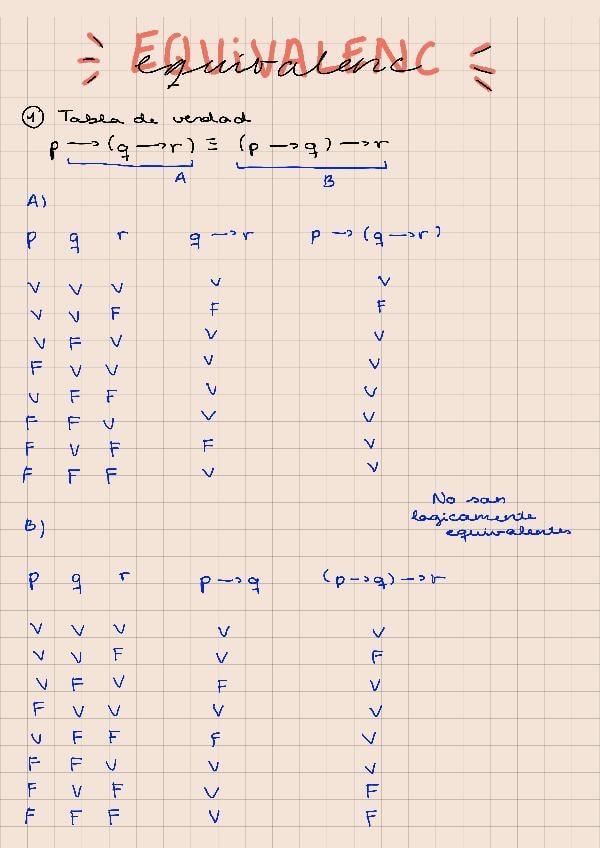 EQUiVALENC
equivalenc
1 Tabla de verdad
p → (q → r) ≡ (p → q) → r
A B
A)
p q r q → r p → (q → r)
V V V V V
V V F F F
V F V V V
F V V V V
V F F V V
F F V V V
F V F F V
F F F V V
No son
logicamente
equivalentes
B)
p q r p → q (p → q) → r
V V V V V
V V F V F
V F V F V
F V V V V
V F F F V
F F V V V
F V F V F
F F F V F